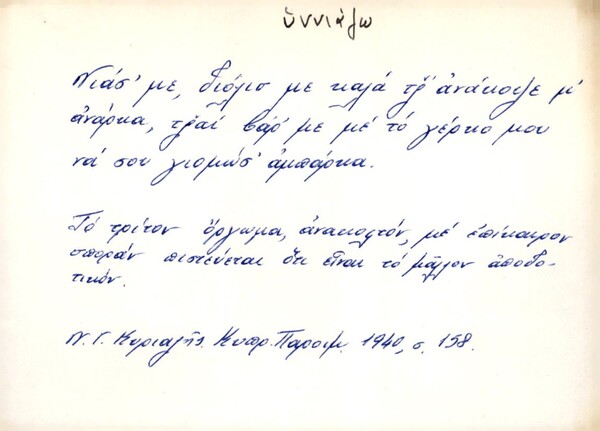 ὑννιάζω
Νιάσ' με, διόλισ με καλά τζ̌' ἀνάκοψε μ'
ἀνάρκα, τζ̌αί βάρ' με μέ τό γέρκο μου
νά σου γιομώσ' ἀμπάρκα.
Τό τρίτον ὄργωμα, ἀνακοφτόν, μέ ἐπίκαιρον
σποράν πιστεύεται ὅτι εἶναι τό μᾶλλον ἀποδο-
τικόν.
Ν. Γ. Κυριαζῆς. Κυπρ. Παροιμ. 1940, σ. 158.